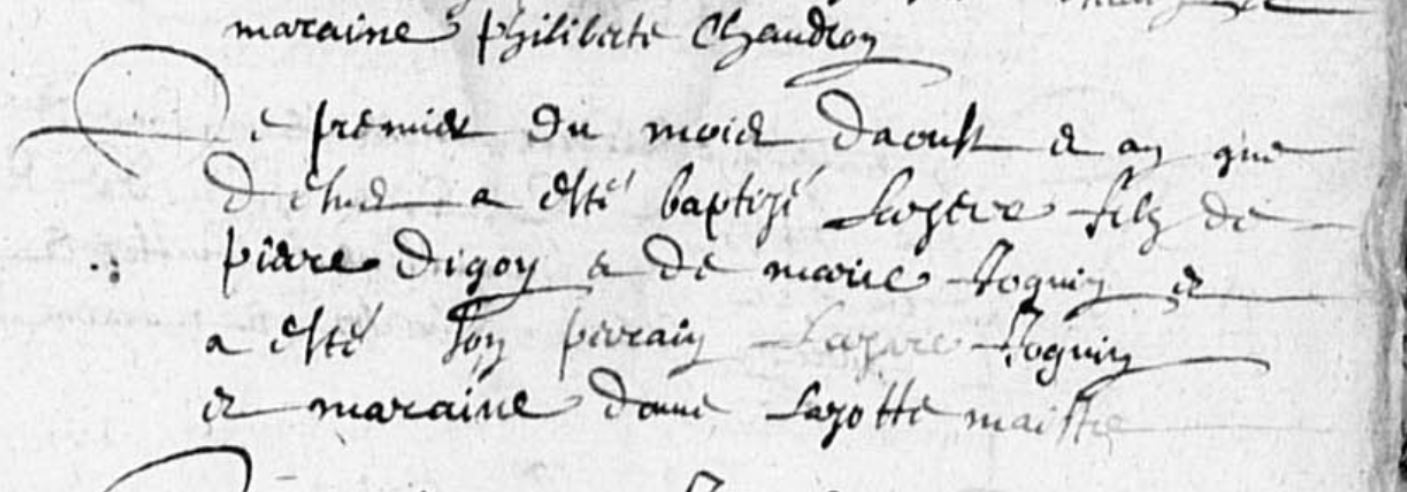 maraine philiberte Chaudron
Le premier du mois daoust & an que
dessus a esté baptizé Lazere filz de
pierre digoy & de marie Roguin &
a esté son parain Lazare Roguin
& maraine dame Lazotte maistre